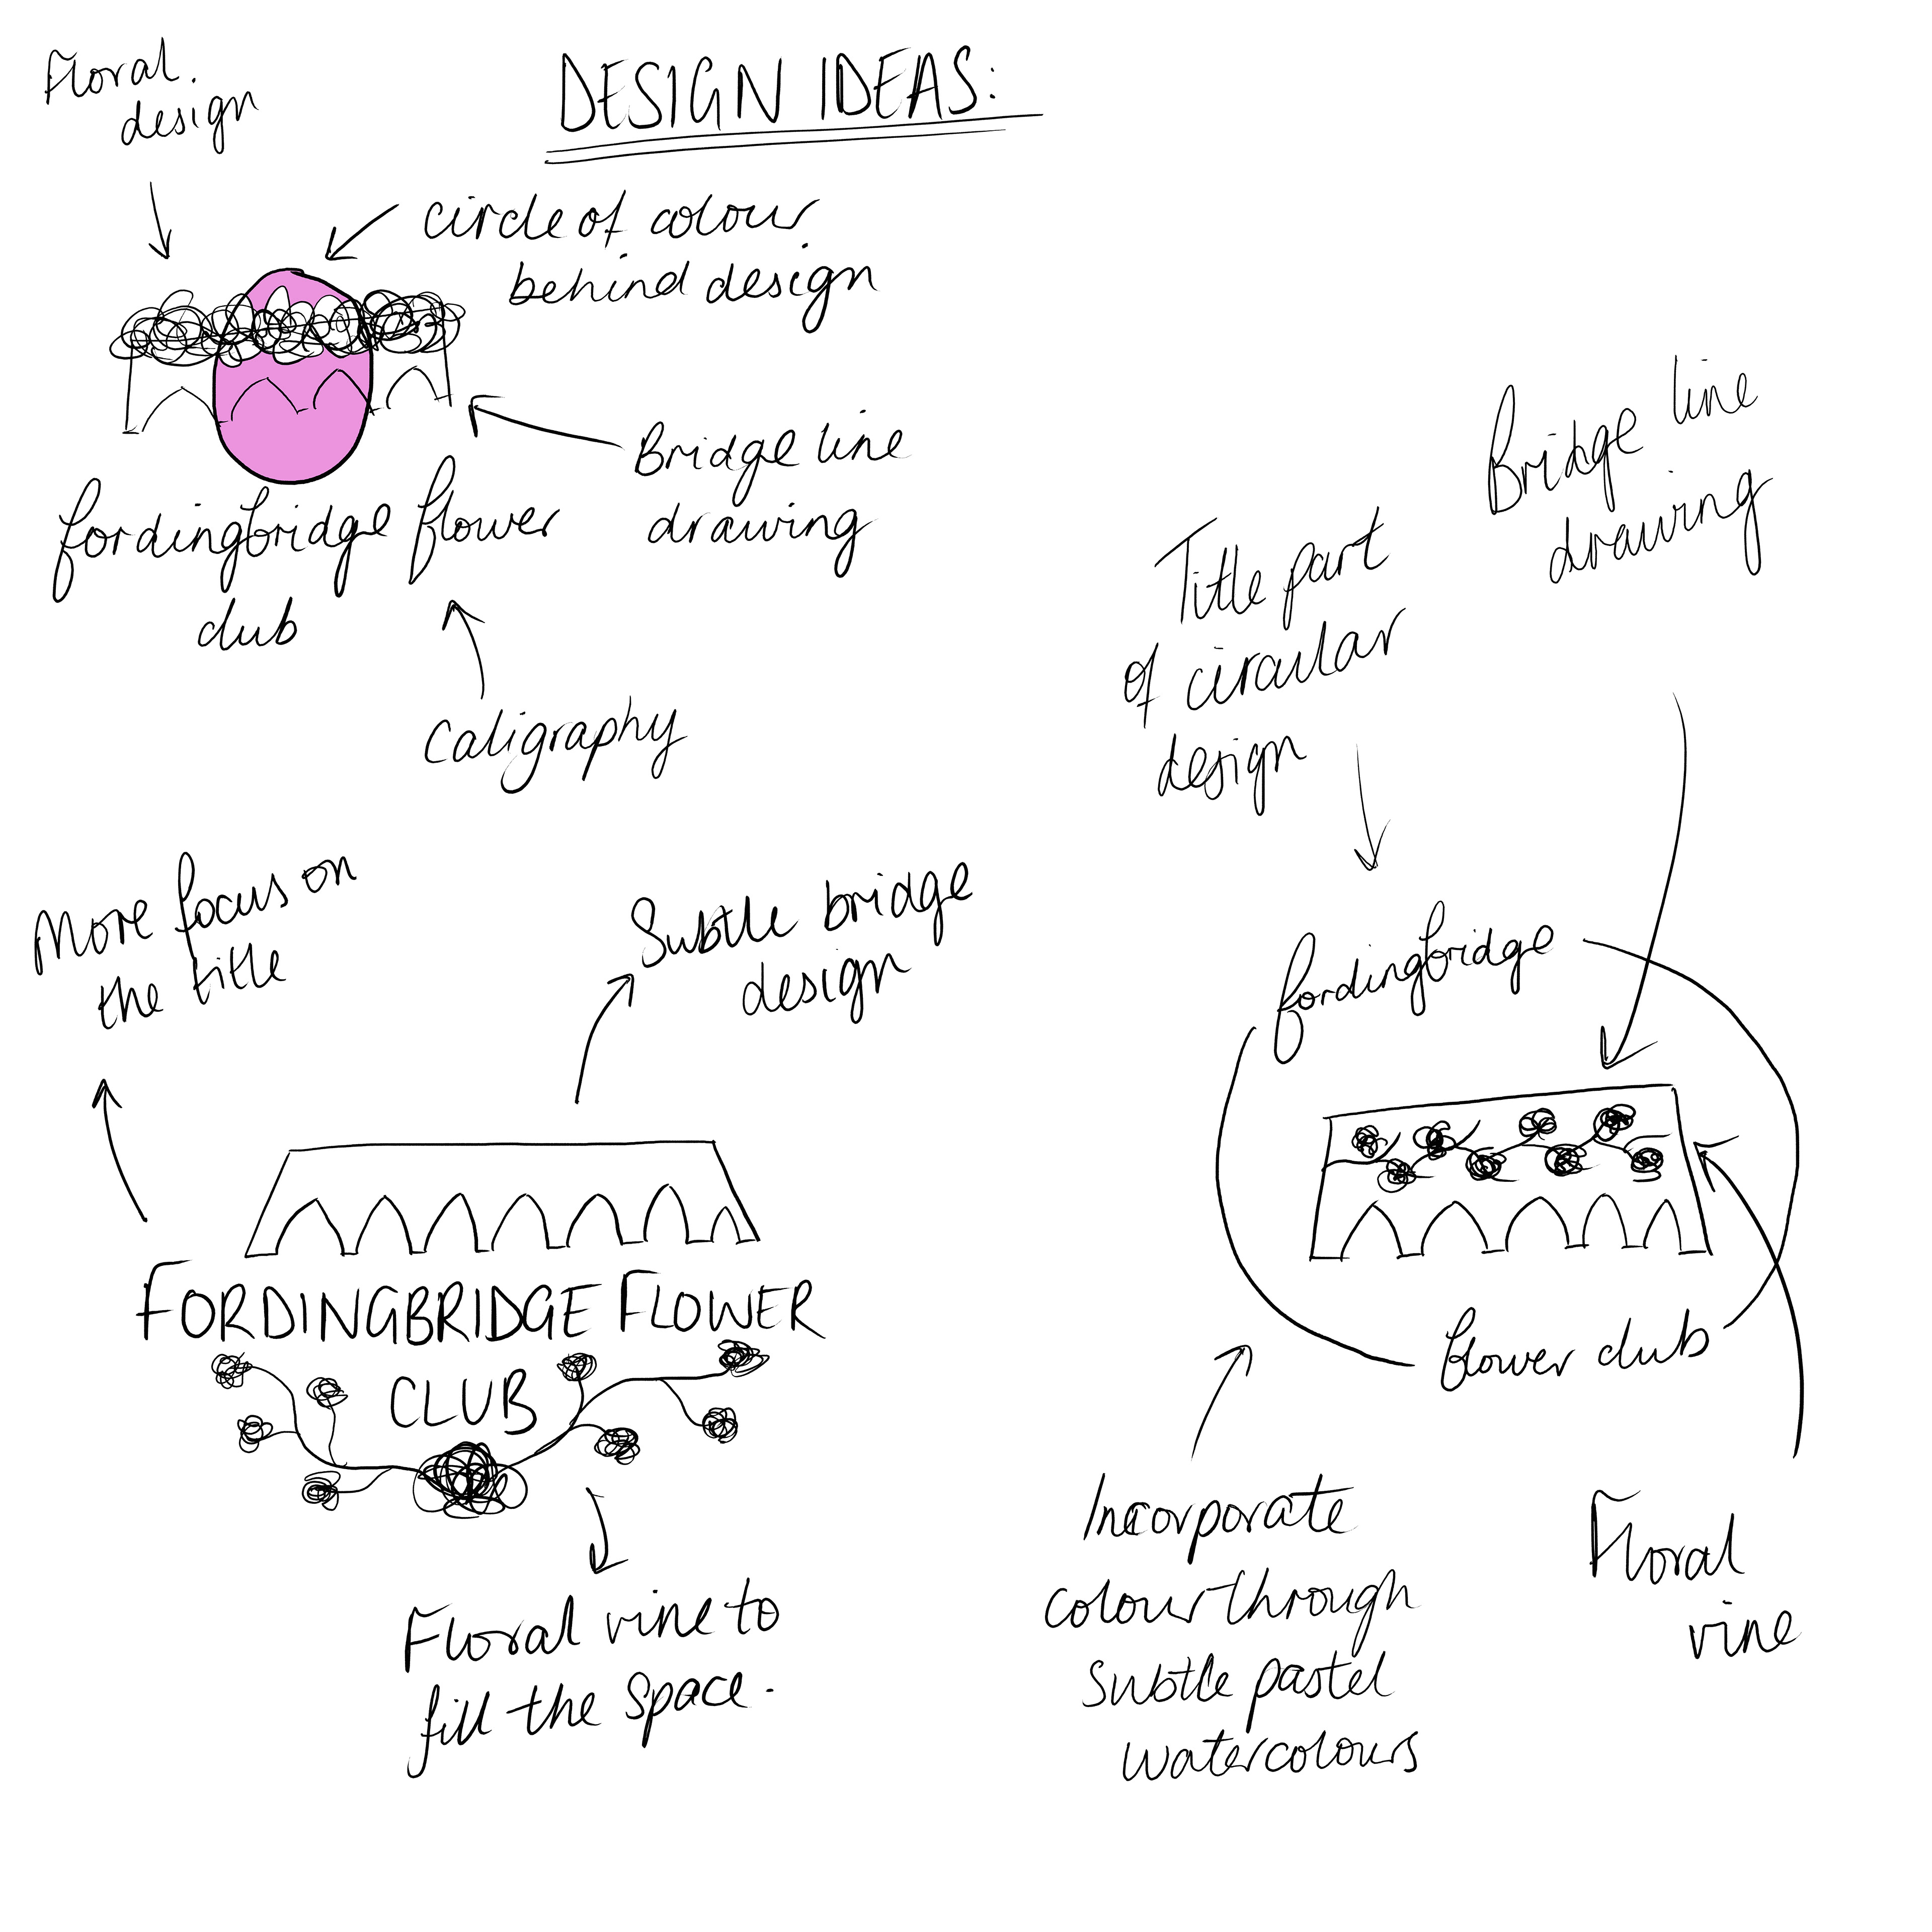 DESIGN IDEAS:
Floral
design
circle of colour
behind design
Bridge line
drawing
fordingbridge flower
club
Caligraphy
More focus on
the title
Subtle bridge
design
FORDINGBRIDGE FLOWER
CLUB
Floral vine to
fill the space.
Bridge line
drawing
Title part
of circular
design
fordingbridge
flower club
Incorporate
colour through
subtle pastel
watercolours
Floral
vine